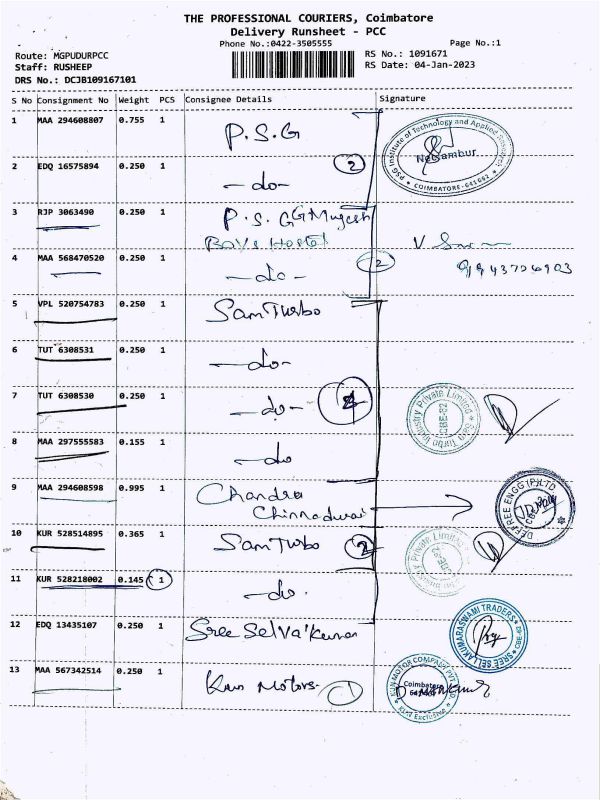 THE PROFESSIONAL COURIERS, Coimbatore
Delivery Runsheet - PCC
Phone No.:0422-3505555
Page No.:1
Route: MGPUDURPCC
RS No.: 1091671
Staff: RUSHEEP
RS Date: 04-Jan-2023
DRS No.: DCJB109167101
S No Consignment No Weight PCS Consignee Details Signature
1 MAA 294608807 0.755 1 P.S.G
PSG Institute of Technology and Applied Research
Neelambur
COIMBATORE-641 062
2 EDQ 16575894 0.250 1 -do- 2
3 RJP 3063490 0.250 1 P.S.G
Boys Hostel
4 MAA 568470520 0.250 1 -do- 2
5 VPL 520754783 0.250 1 Sam Turbo
6 TUT 6308531 0.250 1 -do-
7 TUT 6308530 0.250 1 -do- 4
Sam Turbo Industry Private Limited
CBE-62
8 MAA 297555583 0.155 1 -do
9 MAA 294608598 0.995 1 Chandra
Chinnadurai
DEFREE ENGG (P) LTD
10 KUR 528514895 0.365 1 Sam Turbo 2
11 KUR 528218002 0.145 1 -do.
12 EDQ 13435107 0.250 1 Sree Selvakumar
13 MAA 567342514 0.250 1 Kun Motors. 1
KUN MOTOR COMPANY PVT. LTD
Coimbatore
KUN Exclusive